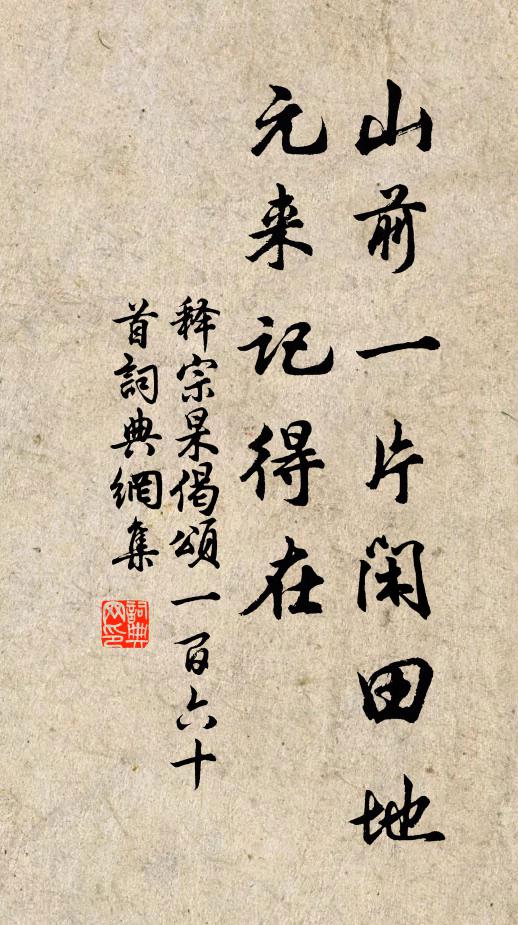 山前一片闲田地
元来记得在
释宗杲偈颂一百六十
首詞典網集
詞典网印